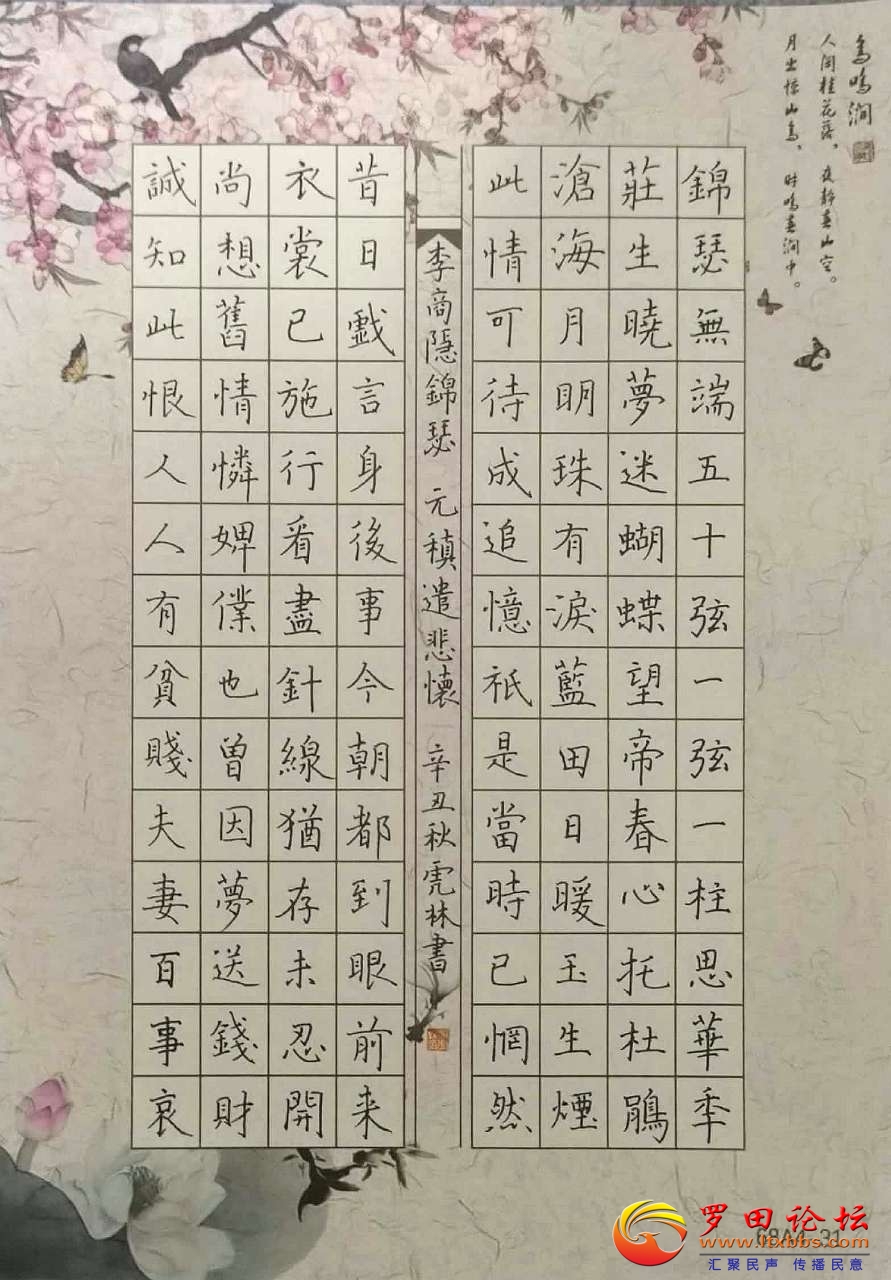 鸟鸣涧
人闲桂花落，夜静春山空。
月出惊山鸟，时鸣春涧中。
錦瑟無端五十弦一弦一柱思華秊
莊生曉夢迷蝴蝶望帝春心托杜鵑
滄海月明珠有淚藍田日暖玉生煙
此情可待成追憶祇是當時已惘然
李商隱錦瑟 元稹遣悲懷 辛丑秋虎林書
昔日戲言身後事今朝都到眼前来
衣裳已施行看盡針線猶存未忍開
尚想舊情憐婢僕也曾因夢送錢財
誠知此恨人人有貧賤夫妻百事哀
罗田论坛
汇聚民声 传播民意